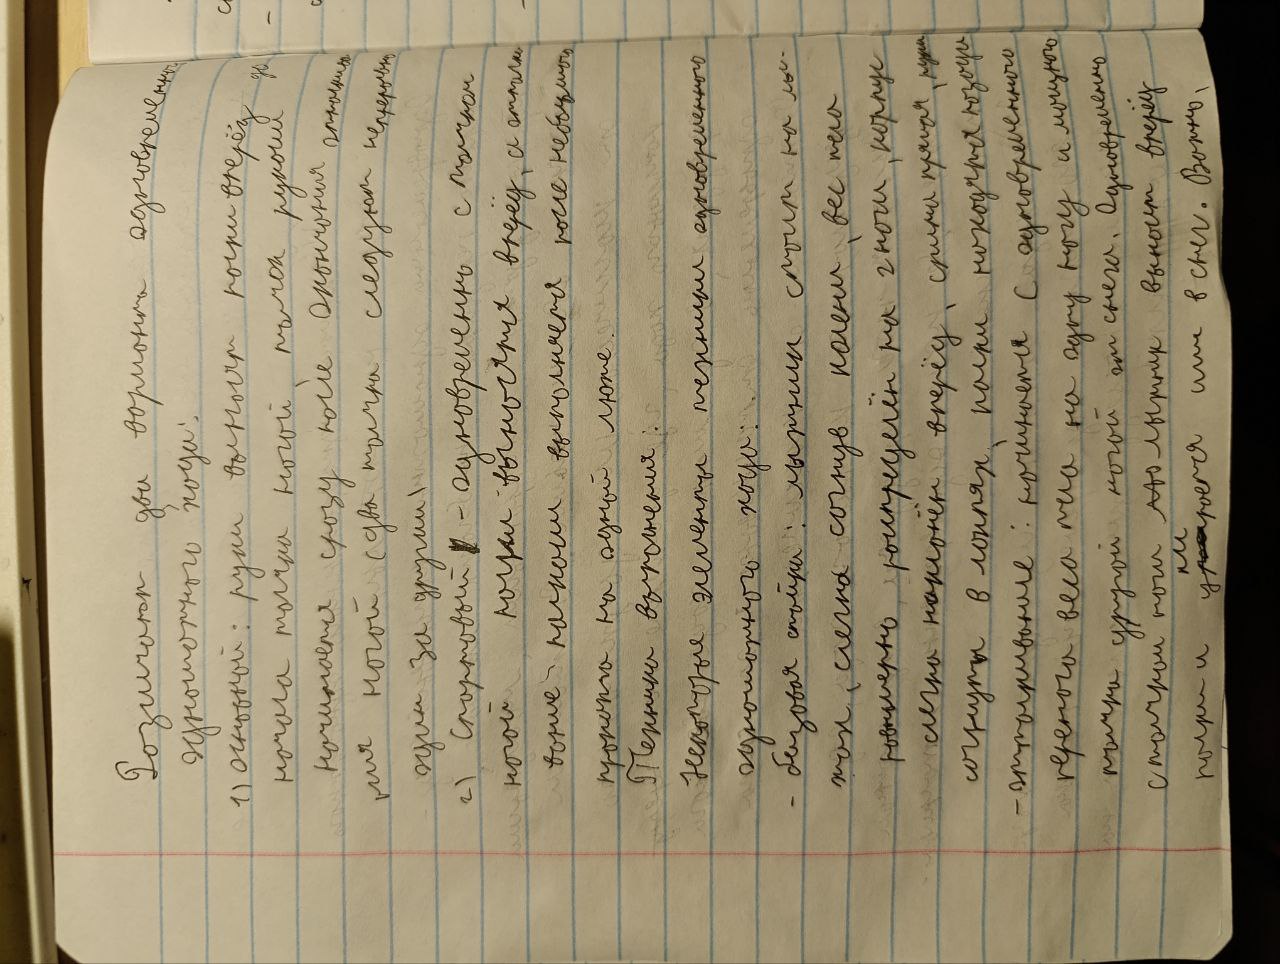 Различают два варианта одновременно
одношажного хода:
1) основной: руки выносят палки вперёд до
начала толчка ногой толчок руками
начинается сразу после окончания отталкива
ния ногой (два толчка следуют непрерывно
один за другим)
2) Скоростной - одновременно с толчком
ногой палки выносятся вперёд, а отталки
вание палками выполняется после небольшого
проката на одной лыже.
Техника выполнения:
Некоторые элементы техники одновременного
одношажного хода:
- базовая стойка: лыжник стоит на лы-
жах, слегка согнув колени, вес тела
равномерно распределён на 2 ноги, корпус
слегка наклонён вперёд, спина прямая, руки
согнуты в локтях, палки находятся позади
- отталкивание: начинается с одновременного
переноса веса тела на одну ногу и мощного
толчка другой ногой от снега. Одновременно
с толчком ноги лыжник выносит вперёд
палки и ими в снег. Важно,